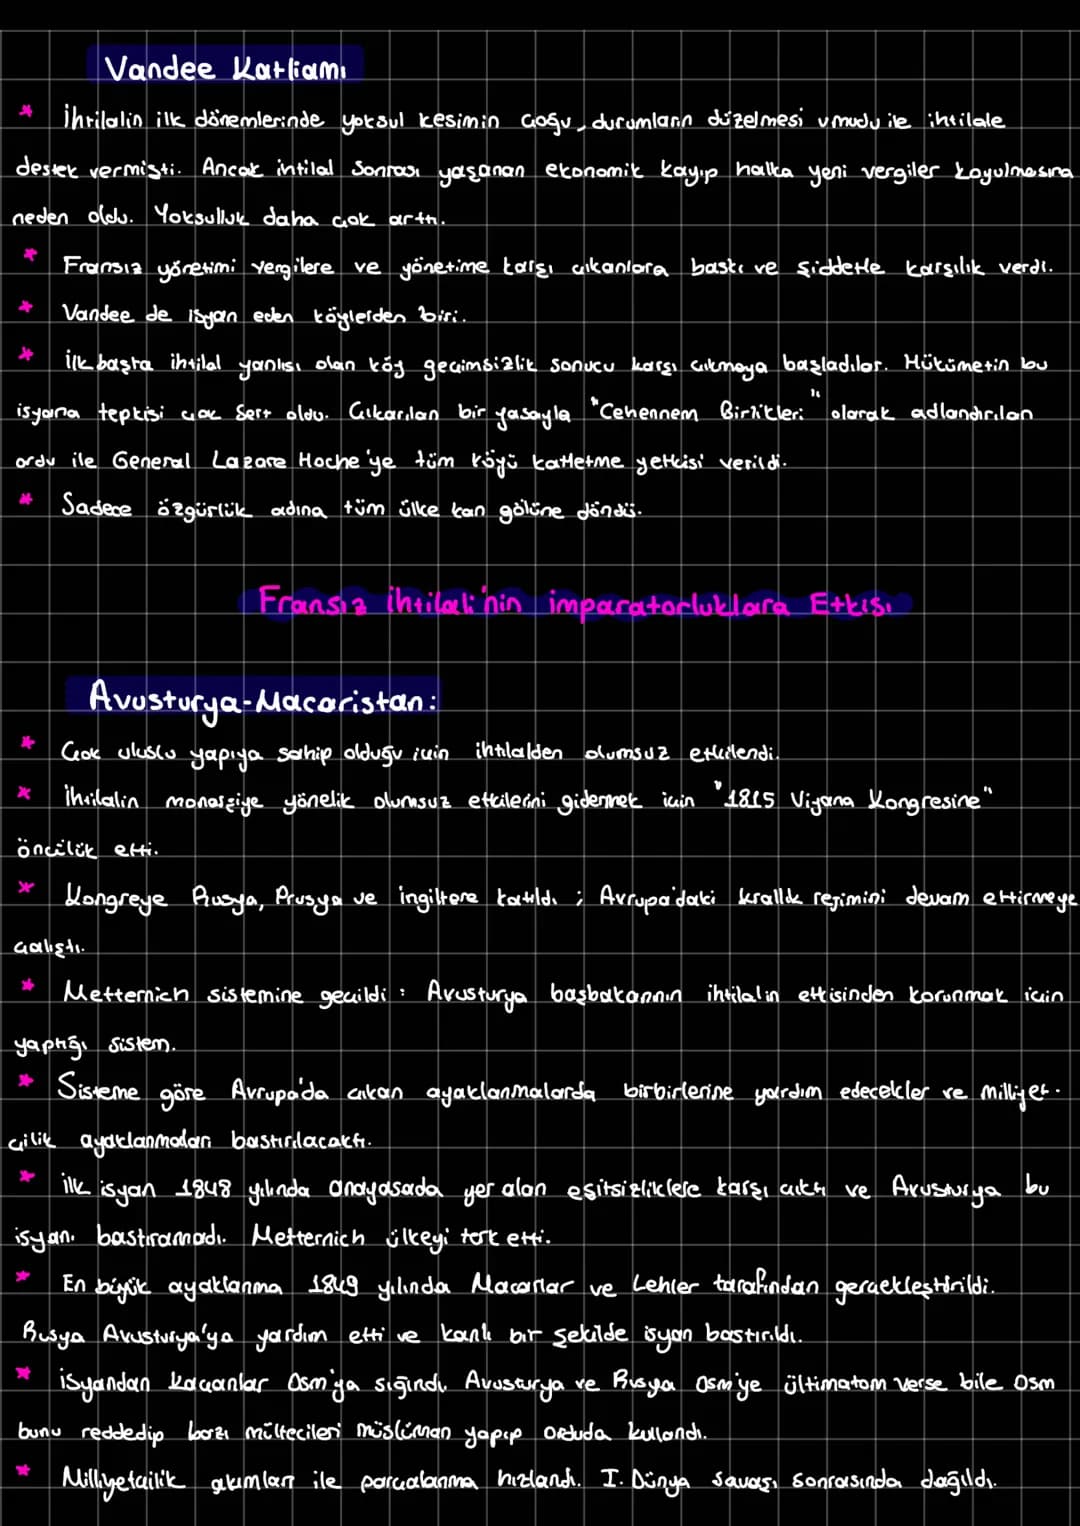 Vandee Katliamı
* İhtilalin ilk dönemlerinde yoksul kesimin çoğu, durumların düzelmesi umudu ile ihtilale
destek vermişti. Ancak ihtilal sonrası yaşanan ekonomik kayıp halka yeni vergiler koyulmasına
neden oldu. Yoksulluk daha çok arttı.
* Fransız yönetimi vergilere ve yönetime karşı çıkanlara baskı ve şiddetle karşılık verdi.
* Vandee de isyan eden köylerden biri.
* İlk başta ihtilal yanlısı olan köy geçimsizlik sonucu karşı çıkmaya başladılar. Hükümetin bu
isyana tepkisi çok sert oldu. Çıkarılan bir yasayla "Cehennem Birlikleri" olarak adlandırılan
ordu ile General Lazare Hoche'ye tüm köyü katletme yetkisi verildi.
* Sadece özgürlük adına tüm ülke kan gölüne döndü.
Fransız ihtilali'nin imparatorluklara Etkisi
Avusturya-Macaristan:
* Çok uluslu yapıya sahip olduğu için ihtilalden olumsuz etkilendi.
* İhtilalin monarşiye yönelik olumsuz etkilerini gidermek için "1815 Viyana Kongresine"
öncülük etti.
* Kongreye Rusya, Prusya ve ingiltere katıldı; Avrupa'daki krallık rejimini devam ettirmeye
çalıştı.
* Metternich sistemine geçildi: Avusturya başbakanının ihtilalin etkisinden korunmak için
yaptığı sistem.
* Sisteme göre Avrupa'da çıkan ayaklanmalarda birbirlerine yardım edecekler ve milliyet-
çilik ayaklanmaları bastırılacaktı.
* İlk isyan 1848 yılında anayasada yer alan eşitsizliklere karşı çıktı ve Avusturya bu
isyanı bastıramadı. Metternich ülkeyi terk etti.
* En büyük ayaklanma 1849 yılında Macarlar ve Lehler tarafından gerçekleştirildi.
Rusya Avusturya'ya yardım etti ve kanlı bir şekilde isyan bastırıldı.
* isyandan kaçanlar Osm'ya sığındı. Avusturya ve Rusya Osm'ye ültimatom verse bile Osm
bunu reddedip bazı mültecileri müslüman yapıp orduda kullandı.
* Milliyetçilik akımları ile parçalanma hızlandı. I. Dünya savaşı sonrasında dağıldı.